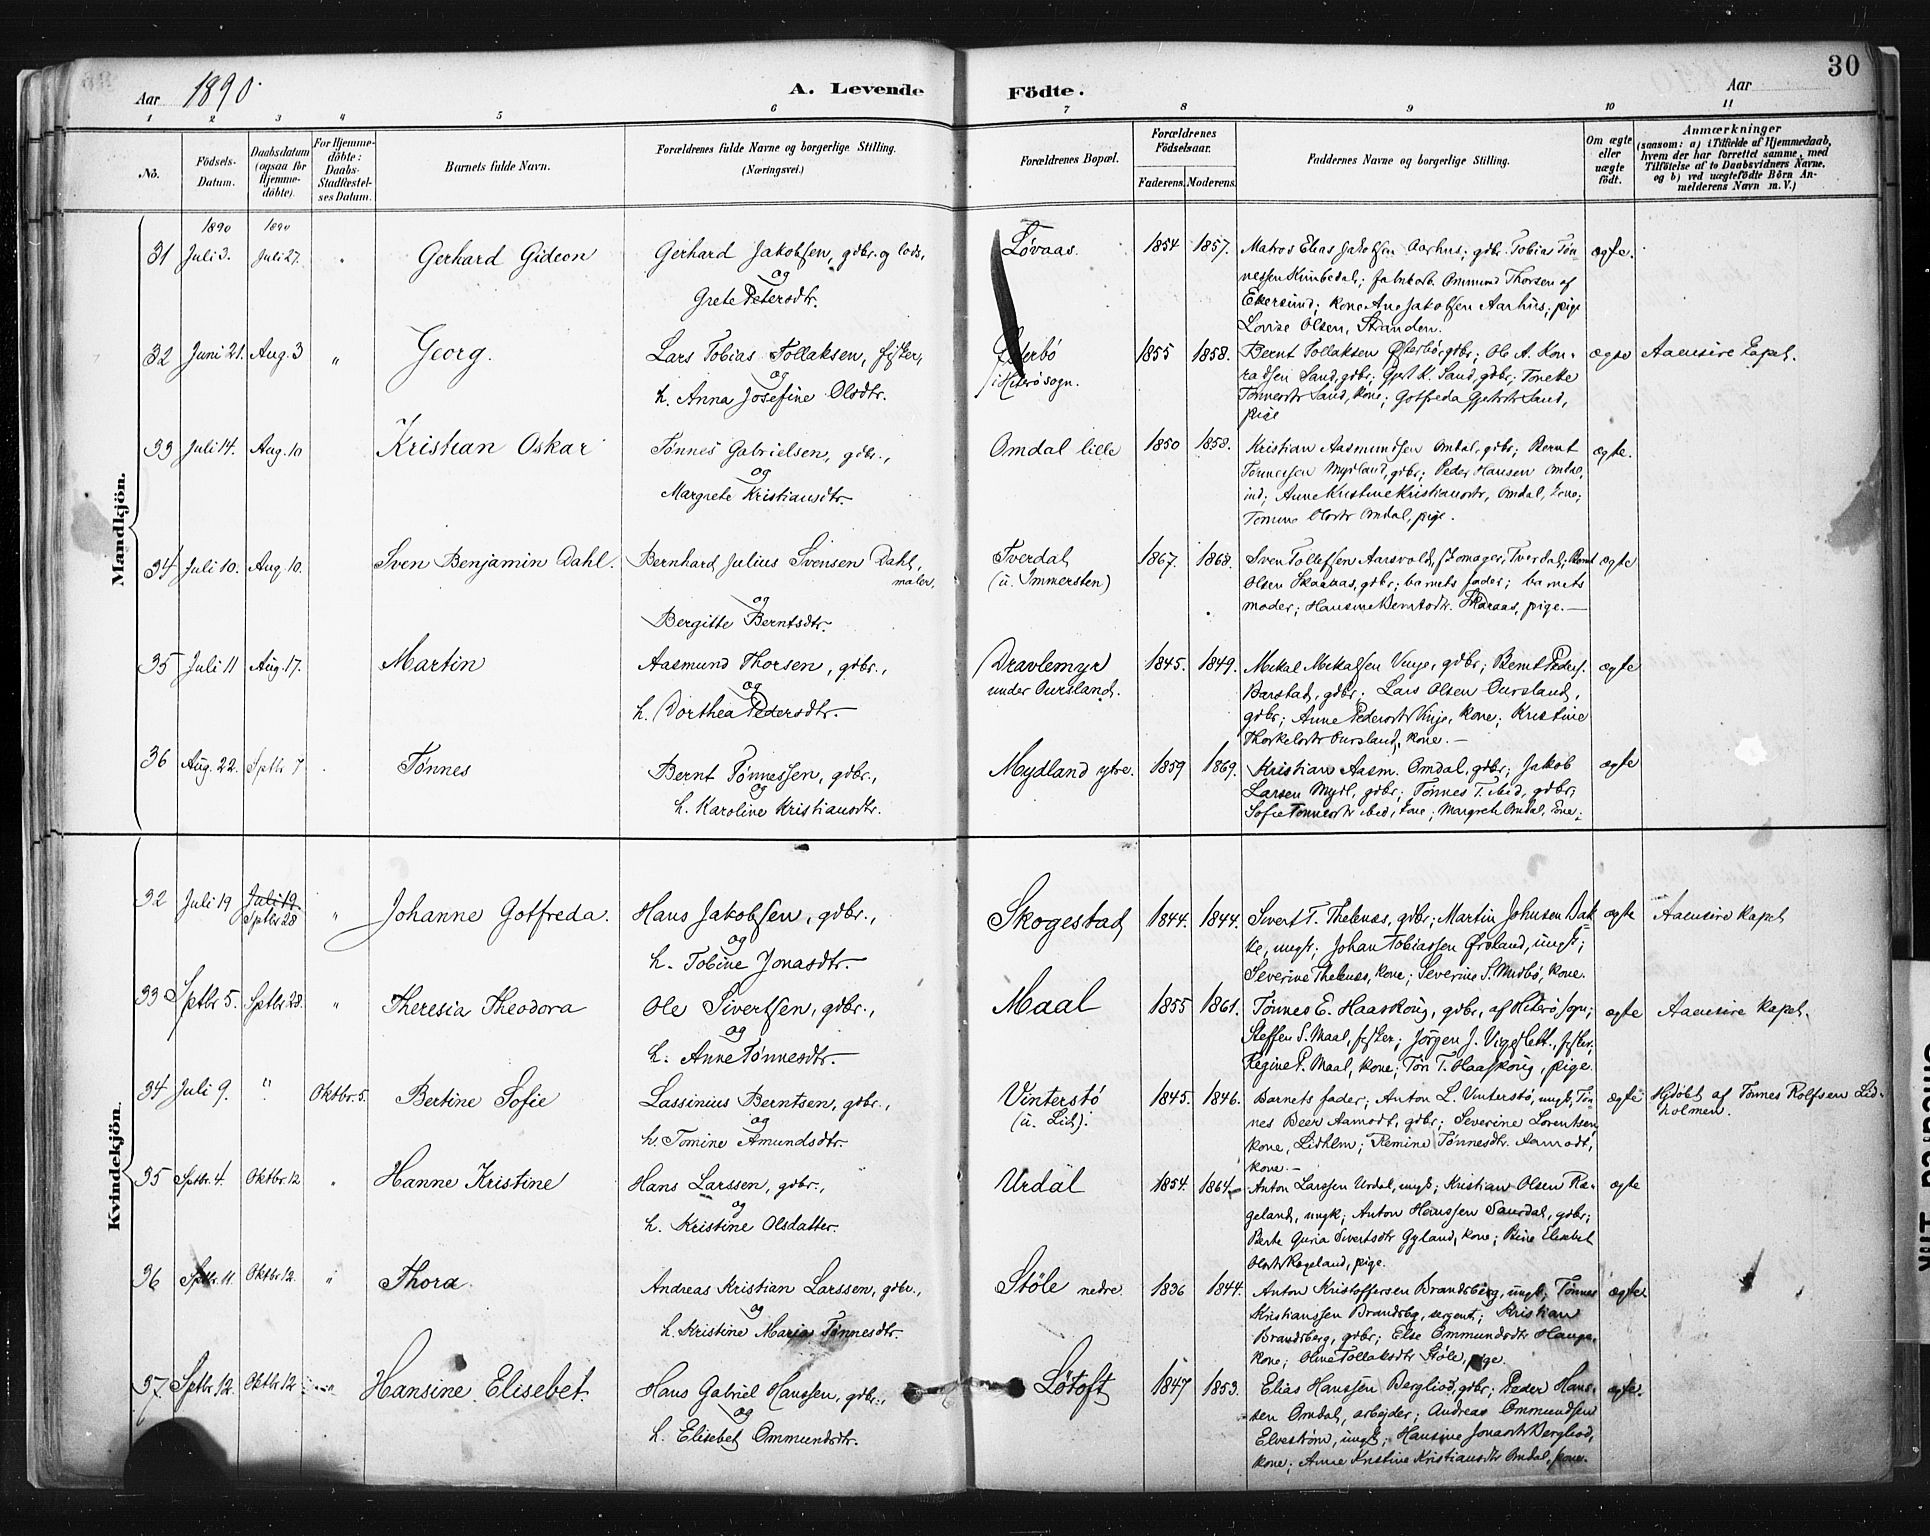 Aar 1890.
A. Levende Födte.
Aar
30
1 2 3 4 5 6 7 8 9 10 11
No.
Födsels-Datum.
Daabsdatum (ogsaa for Hjemme-döbte).
For Hjemme-döbte: Daabs-Stadfæstel-ses Datum.
Barnets fulde Navn.
Forældrenes fulde Navne og borgerlige Stilling. (Næringsvei.)
Forældrenes Bopæl.
Forældrenes Födselsaar.
Faderens. Moderens.
Faddernes Navne og borgerlige Stilling.
Om ægte eller uægte födt.
Anmærkninger
(saasom: a) i Tilfælde af Hjemmedaab, hvem der har forrettet samme, med Tilföielse af to Daabsvidners Navne, og b) ved uægtefödte Börn An-melderens Navn m. V.)
Mandkjön.
1890 1890
31 Juli 3. Juli 27. " Gerhard Gideon Gerhard Jakobsen, gdbr. og lods, Løvaas. 1854 1857. Matros Elias Jakobsen Aarhus; gdbr. Tobias Tøn- ægte.
og
nessen ; Ommund Thorsen af
Grete Petersdtr.
Ekersund; kone Ane Jakobsen Aarhus; pige
Lovise Olsen, Stranden.
32 Juni 21. Aug. 3 " Georg. Lars Tobias Tollaksen, fisker, Østerbø 1855 1858. Bernt Tollaksen Østerbø, gdbr; Ole A. Kon- ægte Aaensire Kapel.
og
i Hiterø sogn.
radsen Sand, gdbr; Gjert K. Sand, gdbr; Tonette
h. Anna Josefine Olsdtr.
Tønnesdtr Sand, kone; Gotfreda Gjertsdtr Sand,
pige
33 Juli 14. Aug. 10 Kristian Oskar Tønnes Gabrielsen, gdbr., Omdal lille 1850 1858. Kristian Aasmundsen Omdal, gdbr; Bernt ægte.
og
Tønnessen Mydland, gdbr; Peder Hansen Omdal,
Margrete Kristiansdtr.
ind; Anne Kristine Kristiansdtr, Omdal, kone;
Tomine Olsdtr Omdal, pige.
34 Juli 10. Aug. 10. Sven Benjamin Dahl. Bernhard Julius Svensen Dahl, maler, Tverdal 1867. 1868. Sven Tollefsen Aarsvold, skomager, Tverdal; Bernt ægte
(u. Immersten)
Olsen Skaraas, gdbr; barnets fader; barnets
og
moder; Hansine Berntsdtr. Skaraas, pige.
Bergitte Berntsdtr.
35 Juli 11 Aug. 17. Martin Aasmund Thorsen, gdbr., Dravlemyr 1845. 1849. Mikal Mikalsen Vinje, gdbr; Bernt Peders. ægte
og
under Oursland.
Barstad, gdbr; Lars Olsen Oursland,
h. Dorthea Pedersdtr.
gdbr; Anne Pedersdtr Vinje, kone; Kristine
Thorkelsdtr Oursland, kone.
36 Aug. 22. Sptbr 7 Tønnes Bernt Tønnessen, gdbr., Mydland ytre. 1859 1869. Kristian Aasm. Omdal, gdbr; Jakob ægte
og
Larsen Mydl, gdbr; Tønnes T. ibid, gdbr;
h. Karoline Kristiansdtr.
Sofie Tønnesdtr ibid, kone; Margrete Omdal, kone;
Kvindekjön.
32 Juli 19 Juli 19. Sptbr 28 " Johanne Gotfreda. Hans Jakobsen, gdbr., Skogestad 1844. 1844. Sivert T. Thelenæs, gdbr; Martin Johnsen Bak- ægte Aaensire Kapel
og
ke, ungk; Johan Tobiassen Ørsland, ungk;
h. Tobine Jonasdtr.
Severine Thelenæs, kone; Severine S. Midbø, kone.
33 Sptbr 5. Sptbr. 28 " Theresia Theodora Ole Sivertsen, gdbr., Maal 1855 1861. Tønnes E. Haaskong, gdbr, af Hiterø sogn; ægte Aaensire Kapel.
og
Steffen S. Maal, fisker; Jørgen J. , fisker;
h. Anne Tønnesdtr.
Regine P. Maal, kone; Tøri T. Haaskong, pige.
34 Juli 9. " Oktbr. 5. Bertine Sofie Lassinius Berntsen, gdbr., Vinterstø 1845. 1846. Barnets fader; Anton L. Vinterstø, ungk; Tøn- ægte Hjdøbt af Tønnes Rolfsen Lid-
og
(u. Lid).
nes Beer Aamodt, gdbr; Severine Lorentsen, holmen.
h. Tomine Amundsdtr.
kone, Lidhlm; Remine Tønnesdtr. Aamodt,
kone.
35 Sptbr. 4. Oktbr. 12 " Hanne Kristine Hans Larssen, gdbr., Urdal 1854. 1864. Anton Larssen Urdal, ungk; Kristian Olsen Ra- ægte
og
geland, ungk; Anton Hanssen Saurdal, gdbr;
h. Kristine Olsdatter.
Berte Guria Sivertsdtr Gyland, kone; Bine Elisabet
Olsdtr Rageland, pige.
36 Sptbr. 11. Oktbr 12. " Thora Andreas Kristian Larssen, gdbr., Støle nedre 1836 1844. Anton Kristoffersen Brandsberg, ungk; Tønnes ægte
og
Kristianssen Brandsbg, sergent; Kristian
h. Kristine Maria Tønnesdtr.
Brandsberg, gdbr; Else Ommundsdtr Hauga,
kone; Oline Tollaksdtr Støle, pige.
37. Sptbr. 12. Oktbr 12 Hansine Elisebet. Hans Gabriel Hanssen, gdbr., Løtoft 1847 1853. Elias Hanssen Bergliod, gdbr; Peder Hans- ægte.
og
sen Omdal, arbejder; Andreas Ommundsen
h. Elisebet Ommundsdtr.
Elvestrøm, ungk; Hansine Jonasdtr Bergliod,
kone; Anne Kristine Kristiansdtr Omdal, kone.